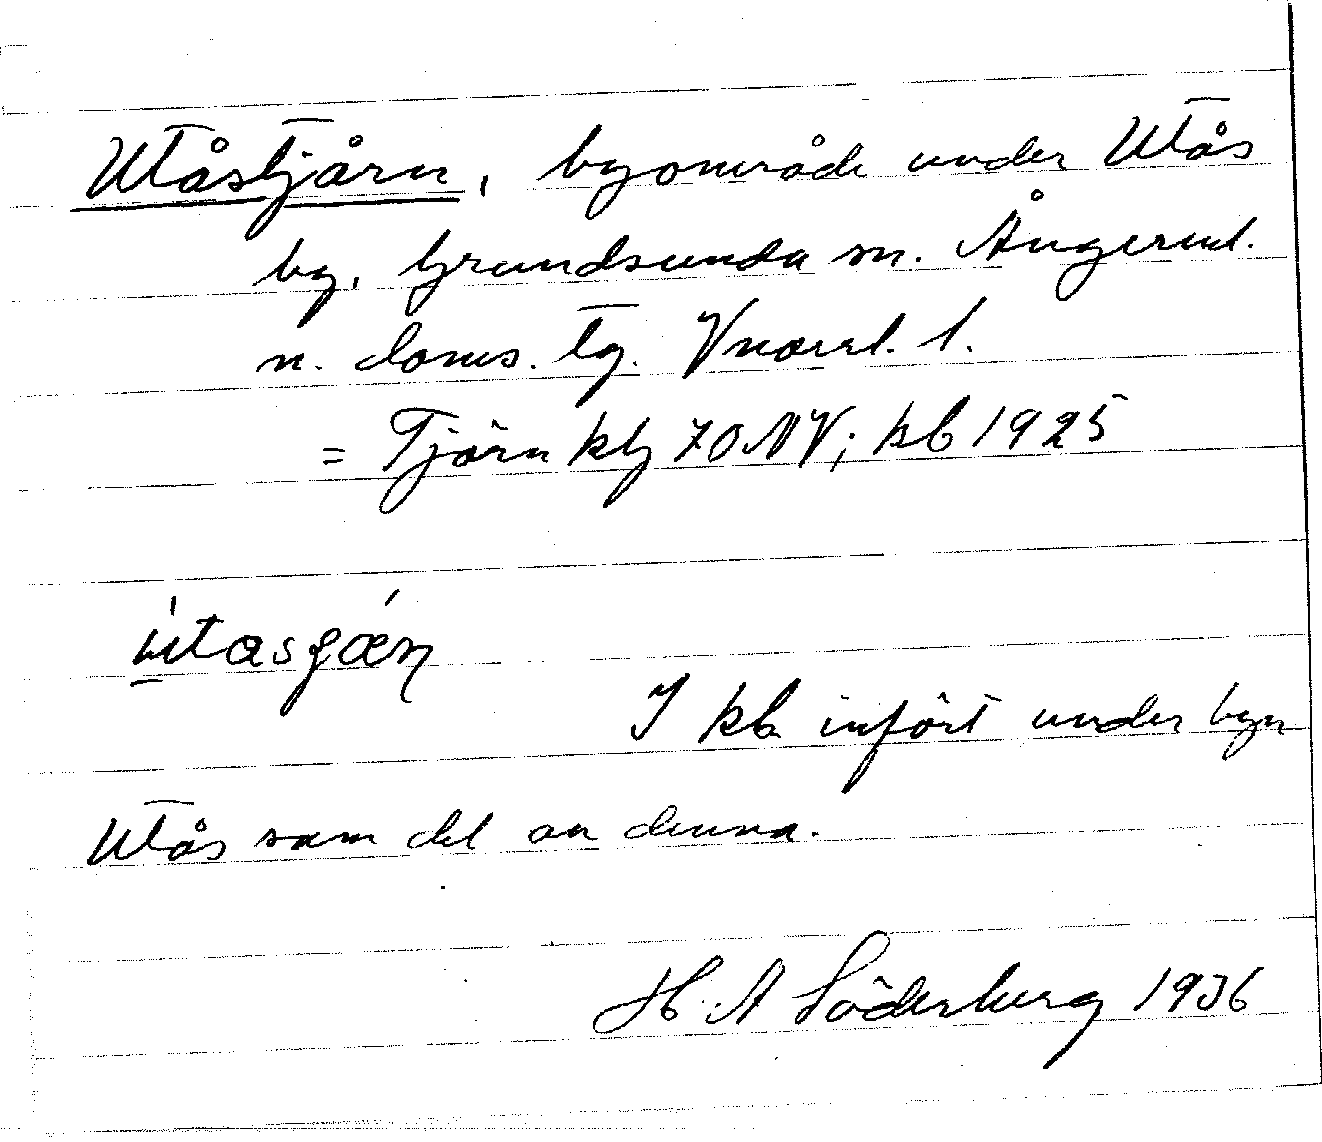 Utåstjärn, byområde under Utås
by, Grundsunda sn. Ångerml.
n. doms. tg. Vnorrl. l.
= Tjärn kbl 70 NV; kb 1925
I kb infört under byn
Utås som del av denna.
H. A Söderberg 1936